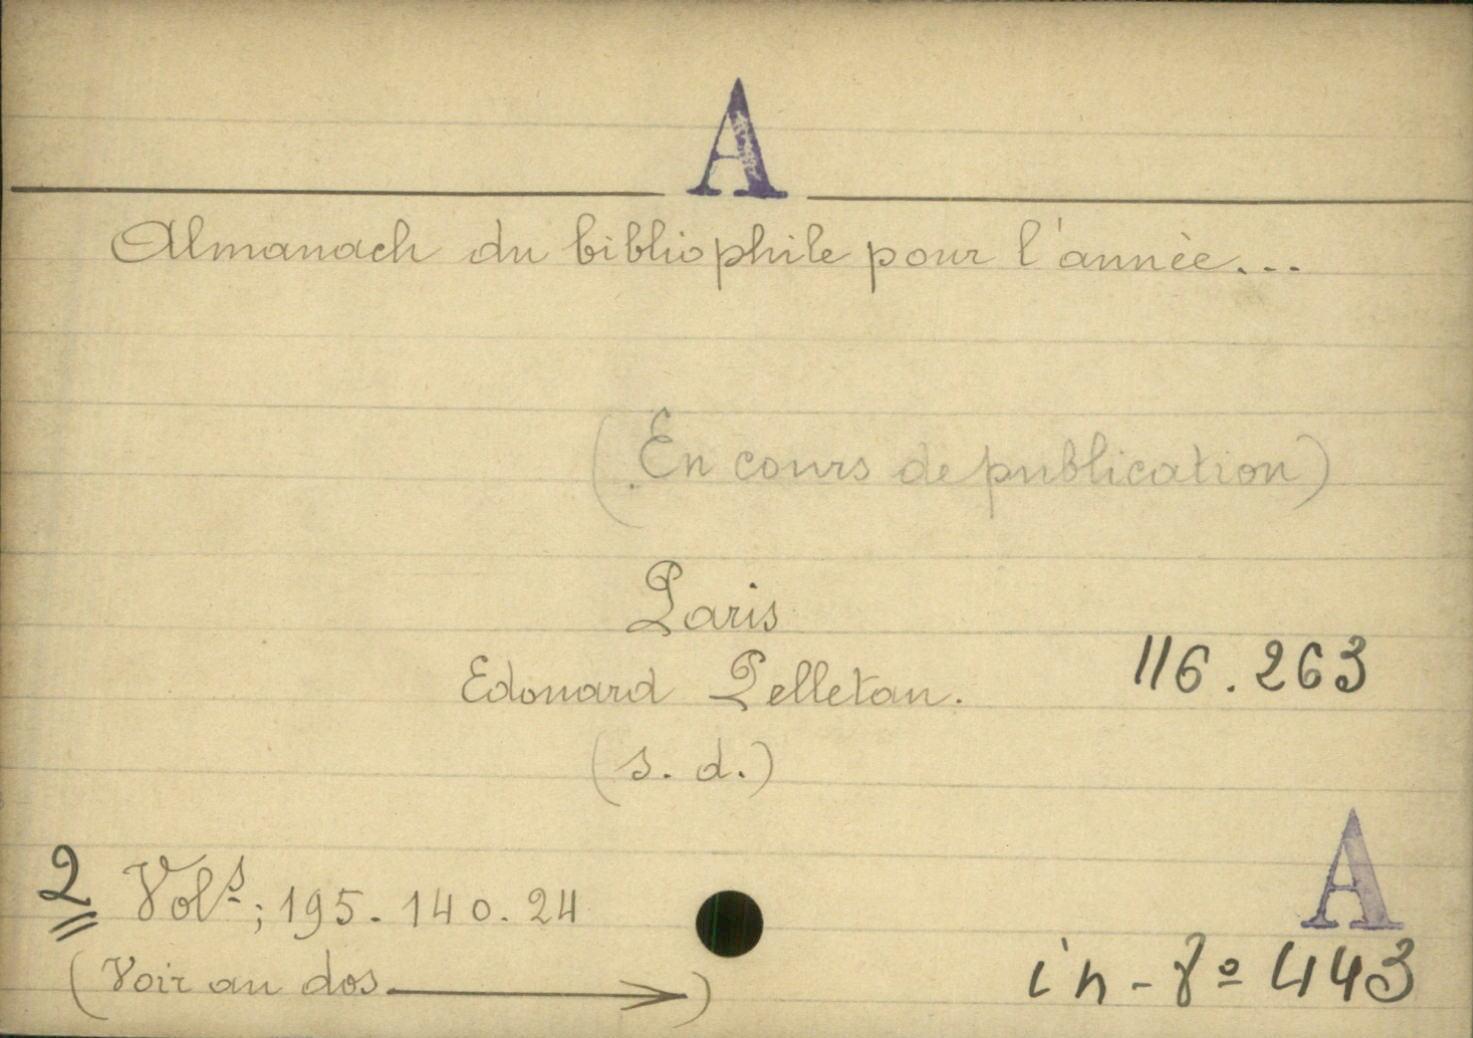 A
Almanach du bibliophile pour l'année...
(En cours de publication)
Paris
Edouard Pelletan.
116.263
(s. d.)
A
2 Vols; 195. 140. 24
(Voir au dos →)
in-8º 443